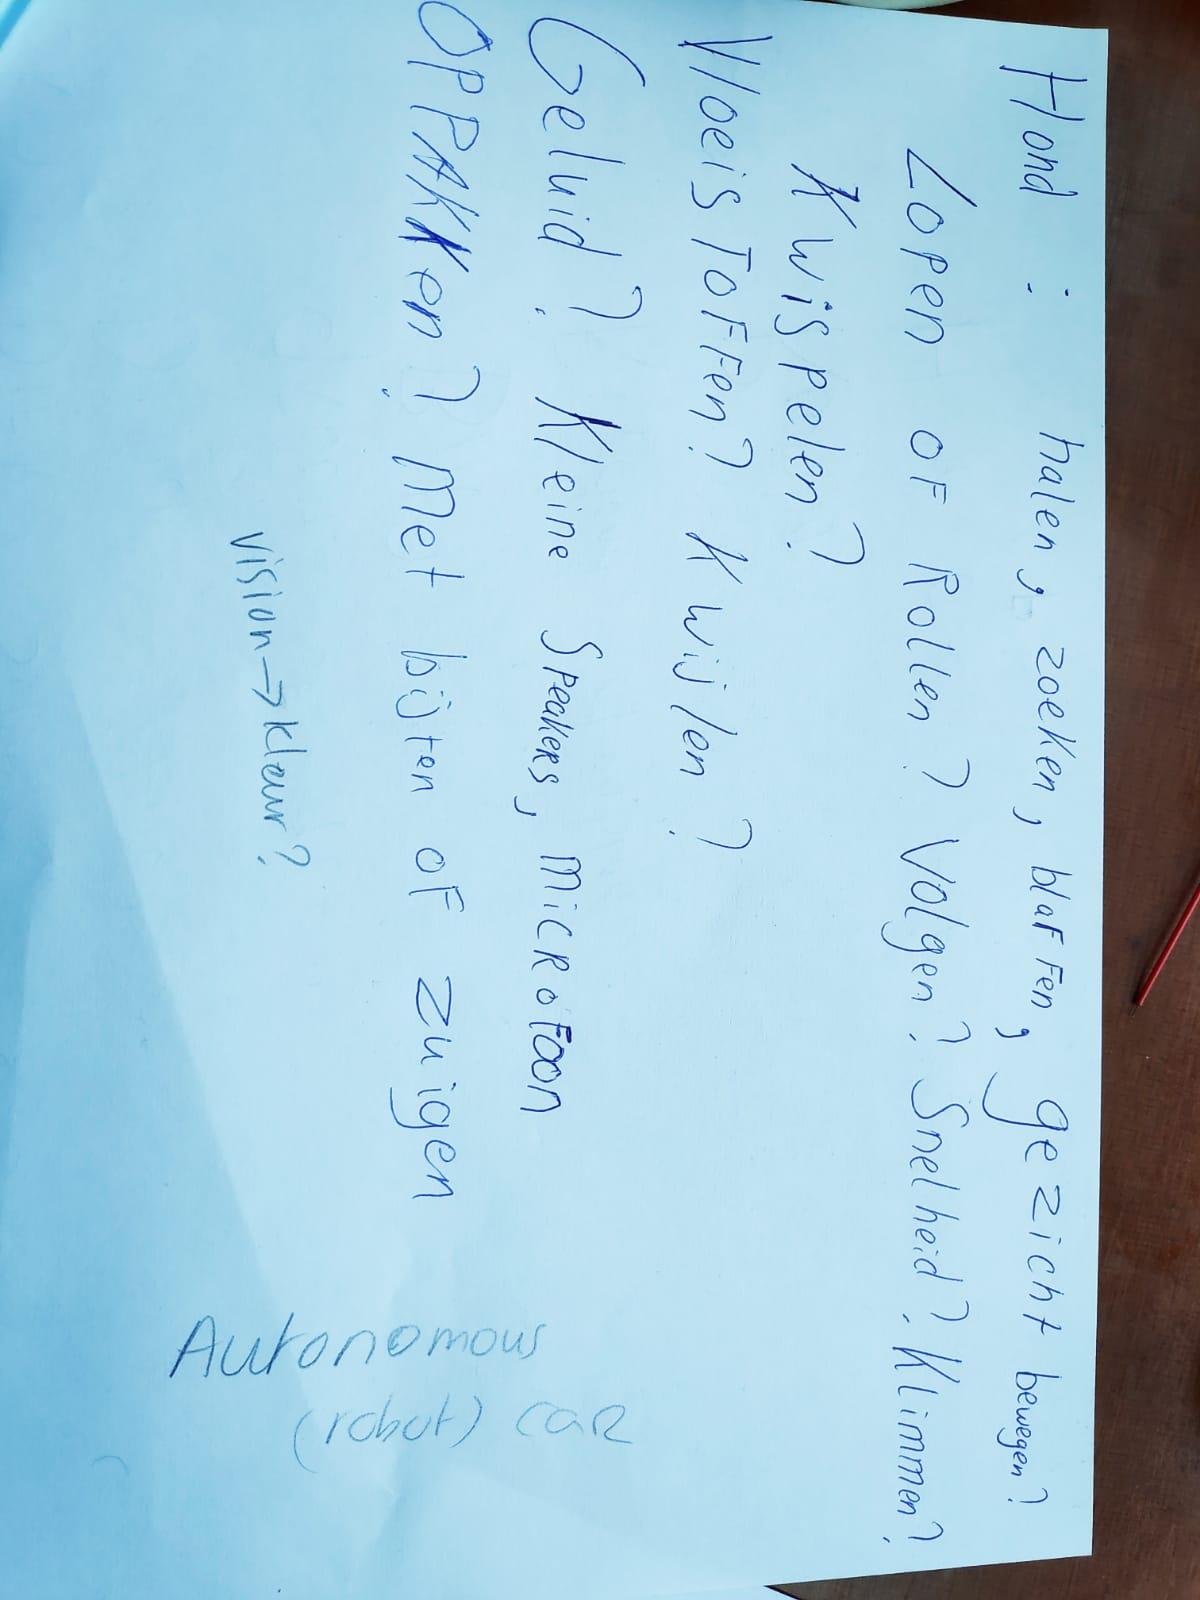 Hond : halen, zoeken, blaffen, gezicht bewegen?
Lopen of Rollen? Volgen? Snelheid? Klimmen?
Kwispelen?
Vloeistoffen? Kwijlen?
Geluid? Kleine Speakers, microfoon
OPPAKKen? Met bijten of zuigen
vision→kleur?
Autonomous
(robot) car